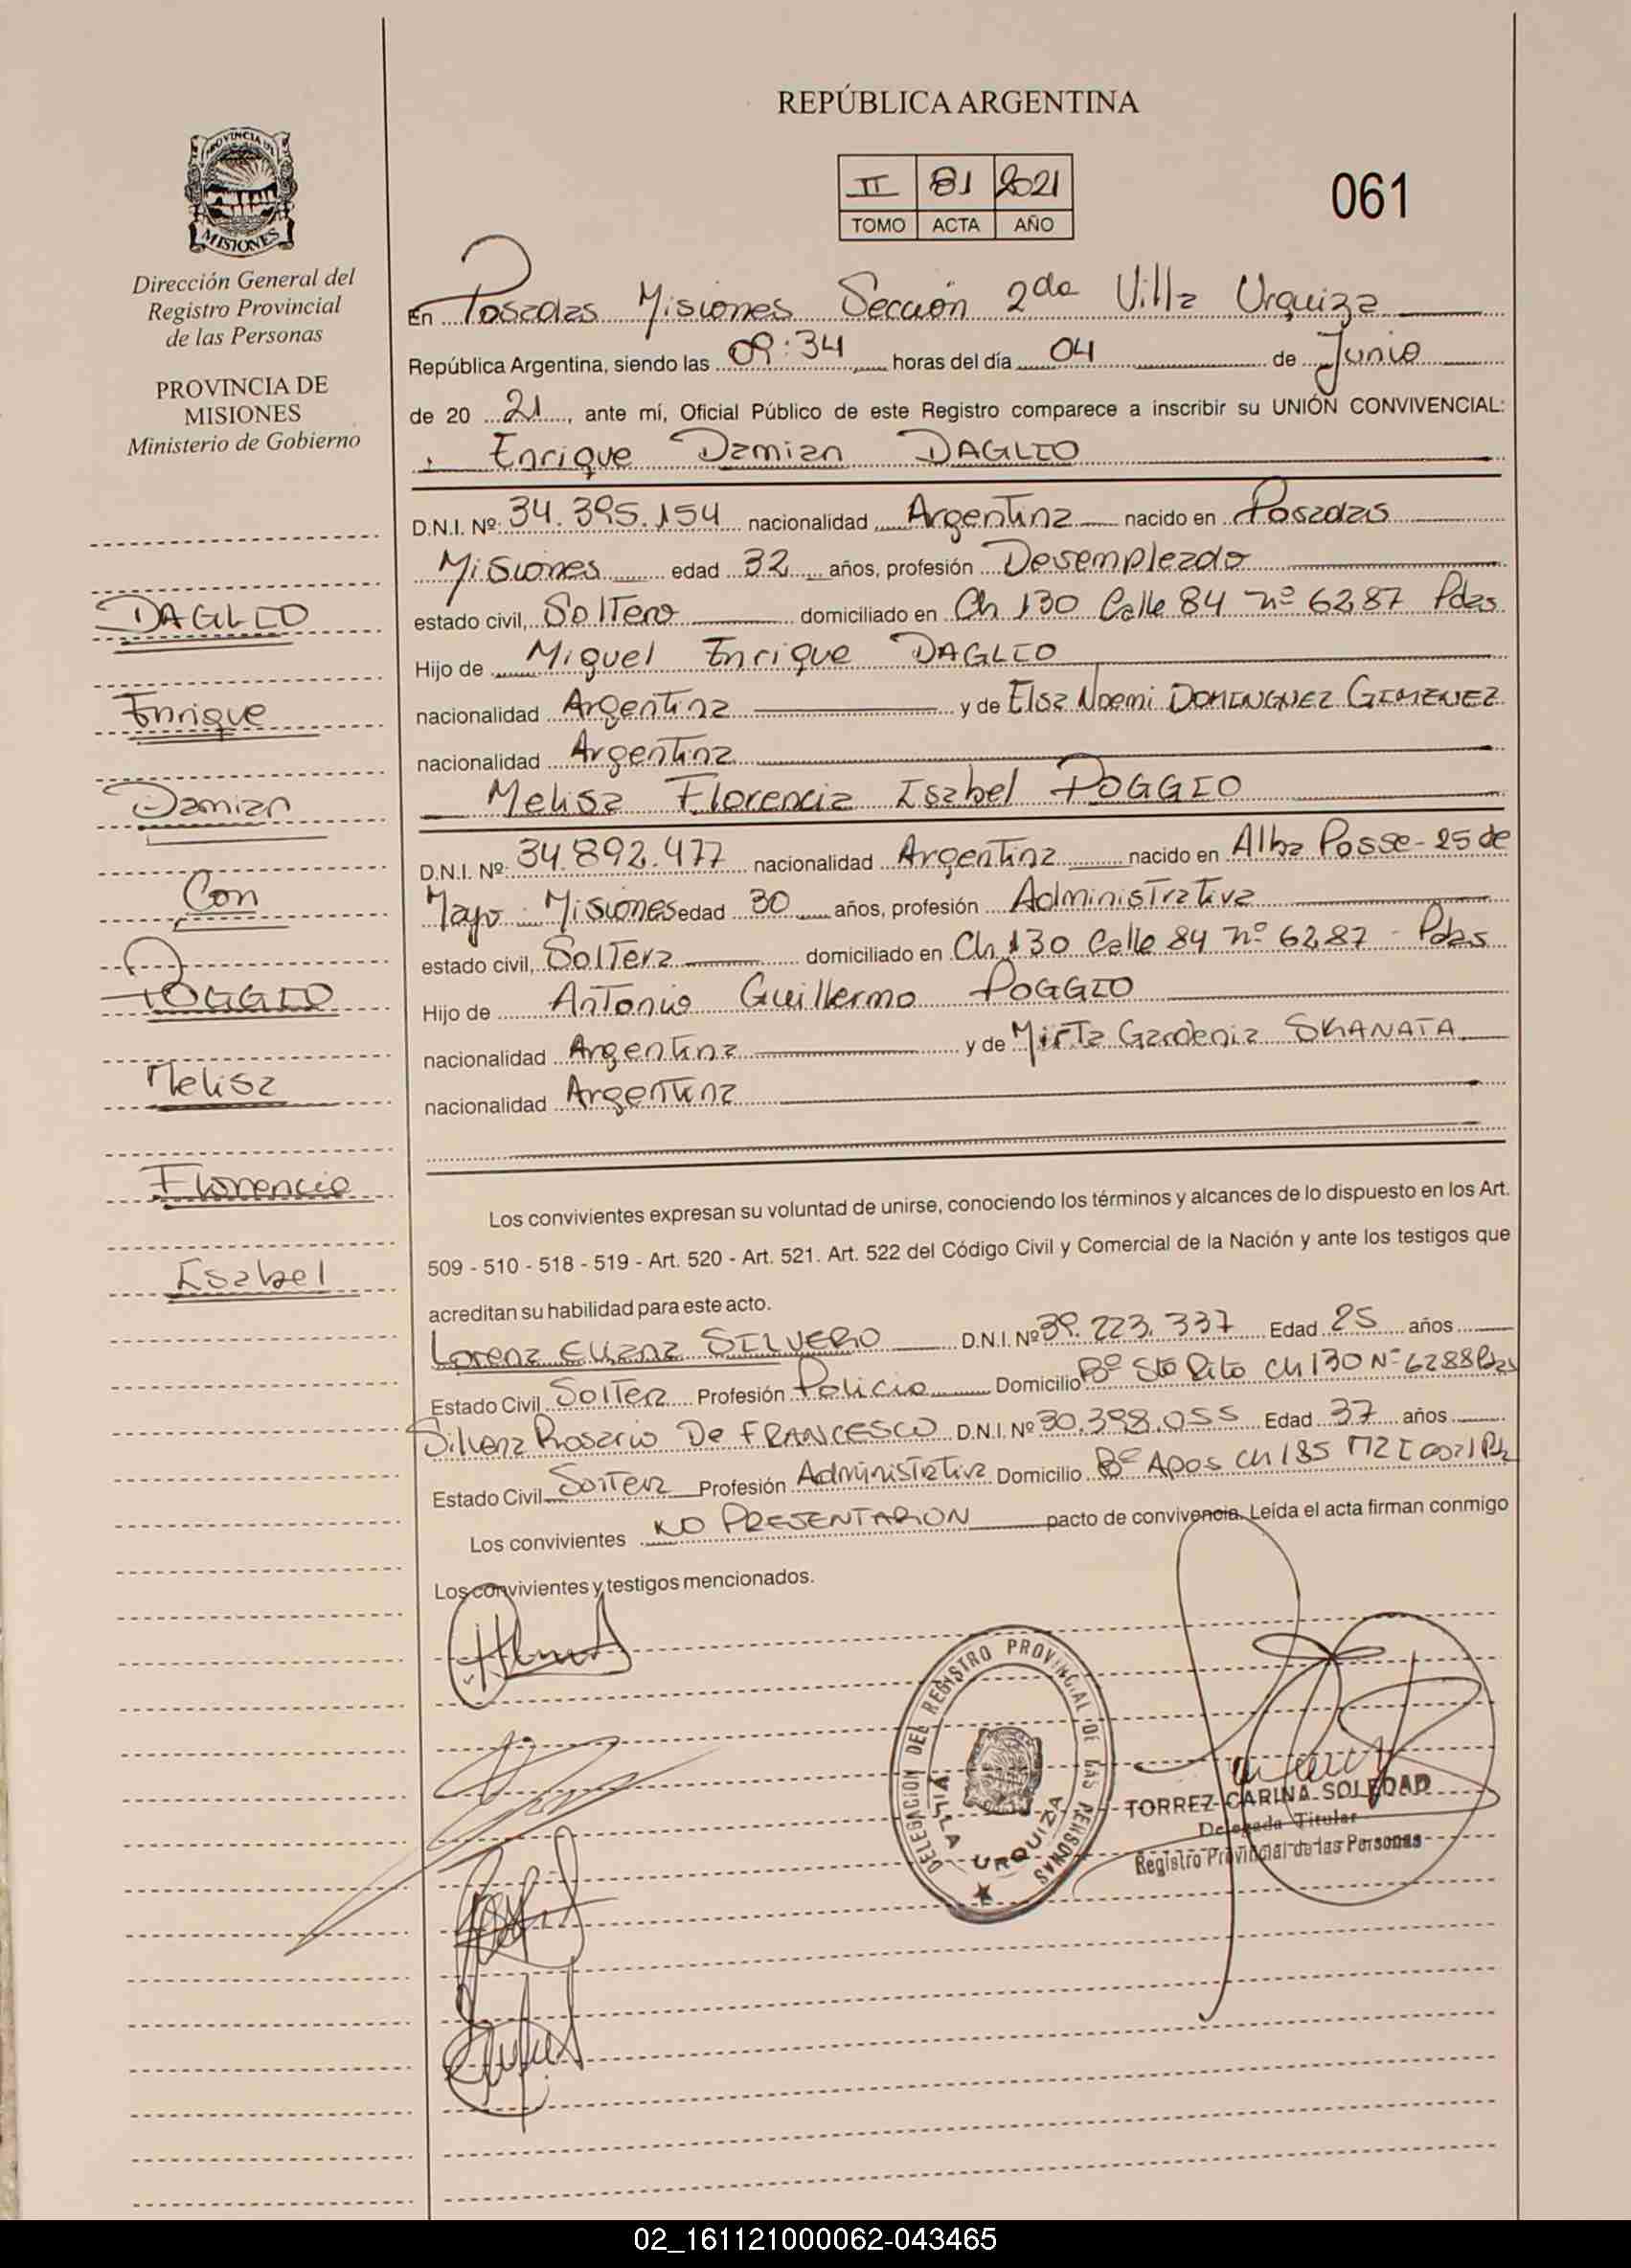 REPÚBLICA ARGENTINA
II 81 2021
TOMO ACTA AÑO
061
PROVINCIA DE
MISIONES
Dirección General del
Registro Provincial
de las Personas
PROVINCIA DE
MISIONES
Ministerio de Gobierno
DAGLIO
Enrique
Damian
Con
POGGIO
Melisa
Florencia
Isabel
En Posadas Misiones Sección 2da Villa Urquiza
República Argentina, siendo las 09:34 horas del día 04 de Junio
de 20 21, ante mí, Oficial Público de este Registro comparece a inscribir su UNIÓN CONVIVENCIAL:
Enrique Damian DAGLIO
D.N.I. Nº: 34.395.154 nacionalidad Argentina nacido en Posadas
Misiones edad 32 años, profesión Desempleado
estado civil, Soltero domiciliado en Ch 130 Calle 84 nº 6287 Pdas
Hijo de Miguel Enrique DAGLIO
nacionalidad Argentina y de Elsa Noemi DOMINGNEZ GIMENEZ
nacionalidad Argentina
Melisa Florencia Isabel POGGIO
D.N.I. Nº: 34.892.477 nacionalidad Argentina nacido en Alba Posse - 25 de
Mayo - Misiones edad 30 años, profesión Administrativa
estado civil, Soltera domiciliado en Ch 130 Calle 84 nº 6287 - Pdas
Hijo de Antonio Guillermo POGGIO
nacionalidad Argentina y de Mirta Gardenia SKANATA
nacionalidad Argentina
Los convivientes expresan su voluntad de unirse, conociendo los términos y alcances de lo dispuesto en los Art.
509 - 510 - 518 - 519 - Art. 520 - Art. 521. Art. 522 del Código Civil y Comercial de la Nación y ante los testigos que
acreditan su habilidad para este acto.
Lorena Eliana SILVERO D.N.I. Nº 39.223.337 Edad 25 años
Estado Civil Soltera Profesión Policia Domicilio Bº Sta Rita Ch 130 Nº 6288 Pdas
Silvana Rosario De FRANCESCO D.N.I. Nº 30.398.055 Edad 37 años
Estado Civil Soltera Profesión Administrativa Domicilio Bº Apos Ch 185
Los convivientes NO PRESENTARON pacto de convivencia. Leída el acta firman conmigo
Los convivientes y testigos mencionados.
DELEGACION DEL REGISTRO PROVINCIAL DE LAS PERSONAS
VILLA URQUIZA
TORREZ CARINA SOLEDAD
Delegada Titular
Registro Provincial de las Personas
02_161121000062-043465